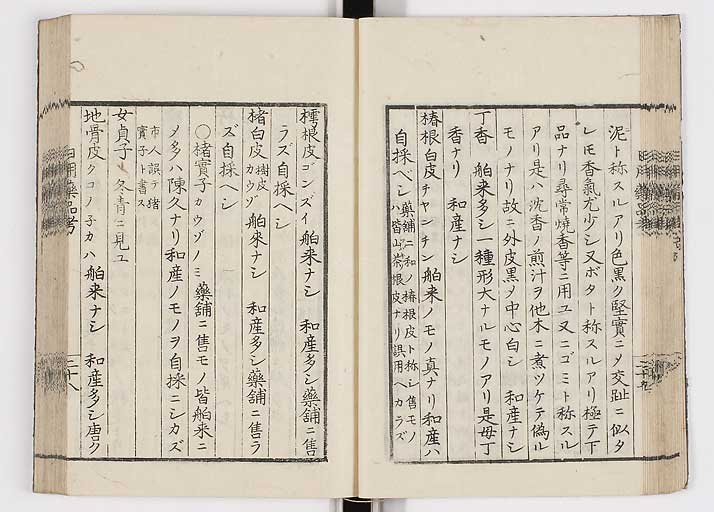 泥ト称スルアリ色黒ク堅實ニメ交趾ニ似タ
レモ香氣尤少シ又ボタト称スルアリ極テ下
品ナリ尋常焼香等ニ用ユ又ニゴミト称スル
アリ是ハ沈香ノ煎汁ヲ他木ニ煮ツケテ偽ル
モノナリ故ニ外皮黒メ中心白シ 和産ナシ
丁香 舶来多シ一種形大ナルモノアリ是毋丁
香ナリ 和産ナシ
椿根白皮 チヤンチン 舶来ノモノ真ナリ和産ハ
自採ベシ 藥鋪ニ和ノ椿根皮ト称シ售モノ
ハ皆山茶根皮ナリ誤用ヘカラズ
樗根皮 ゴンズイ 舶来ナシ 和産多シ藥舗ニ售
ラズ自採ヘシ
楮白皮 樹皮 カウゾ 舶來ナシ 和産多シ藥舗ニ售ラ
ズ自採ヘシ
〇楮實子 カウゾノミ 藥舗ニ售モノ皆舶来ニ
メ多ハ陳久ナリ和産ノモノヲ自採ニシカズ
市人誤テ猪
實子ト書ス
女貞子 冬青ニ見ユ
地骨皮 クコノ子カハ 舶来ナシ 和産多シ唐ク
日用藥品考
二十八